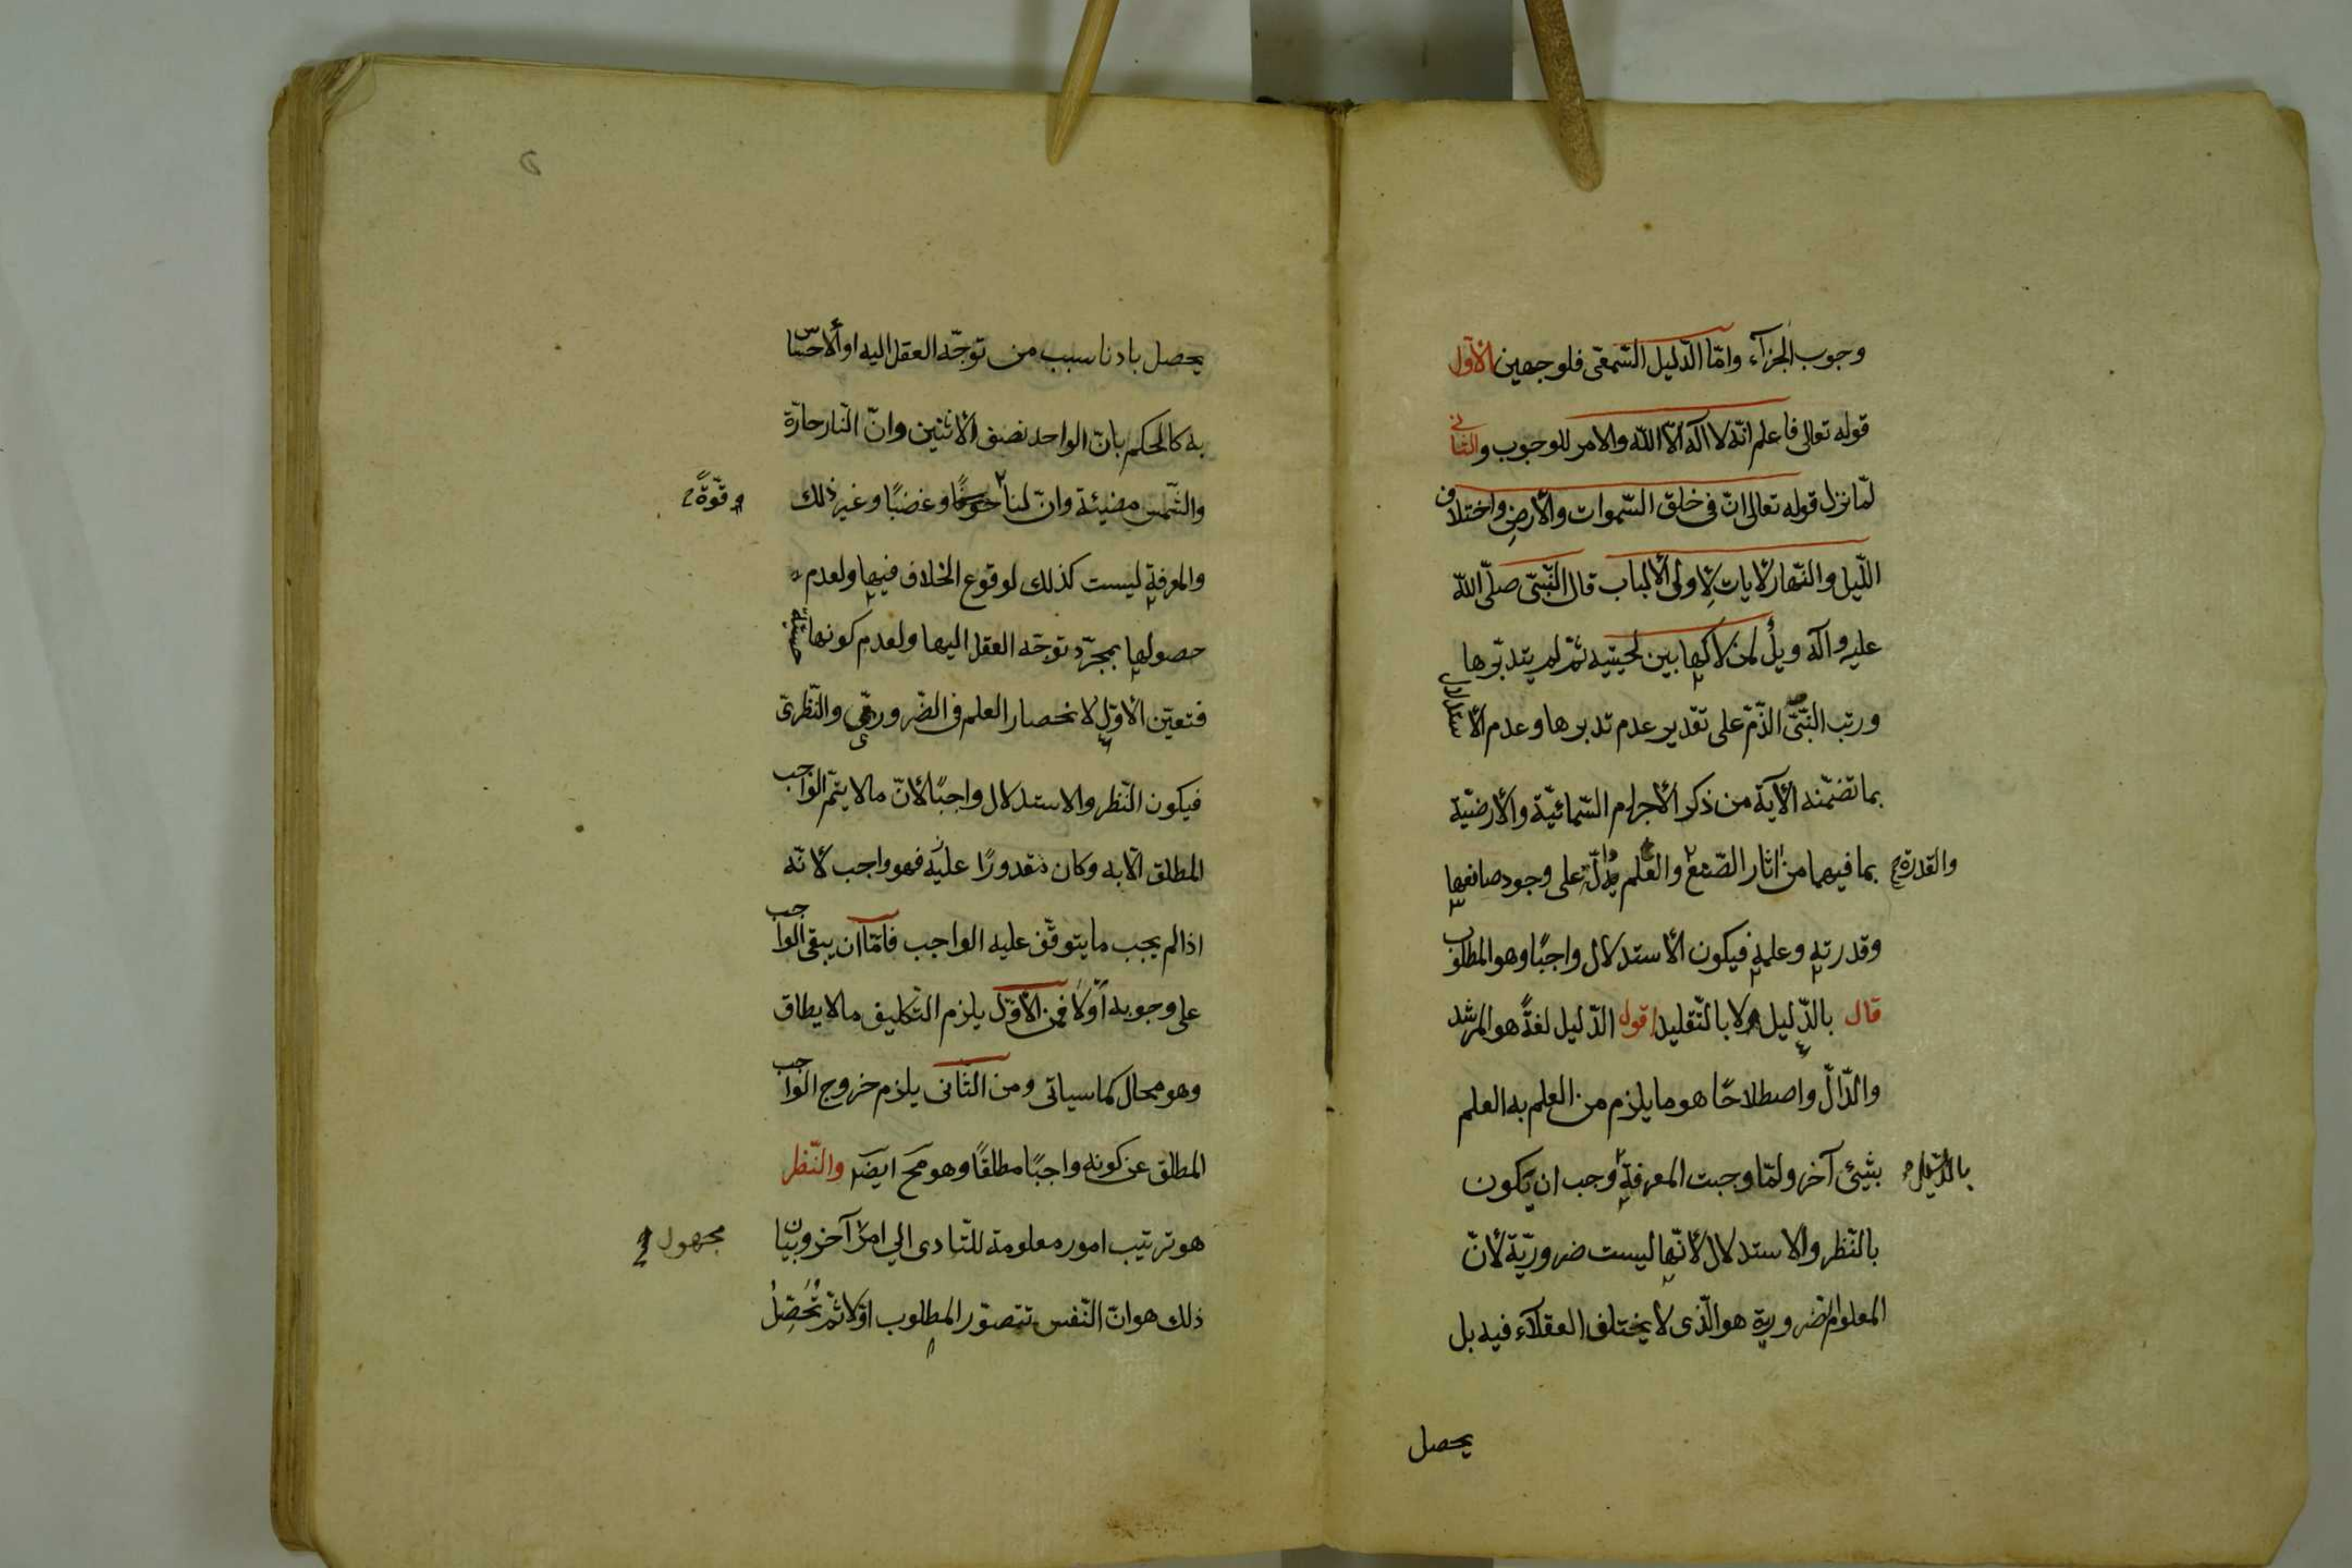 وجوب الجزآء وامّا الدّليل السّمعى فلوجهين الأوّل
قوله تعالى فاعلم انّه لا اله الّا اللّه والامر للوجوب والثانى
لمّا نزل قوله تعالى انّ فى خلق السّموات والأرض واختلاف
اللّيل والنّهار لأيات لِأولى الألباب قال النّبىّ صلّى اللّه
عليه وآله ويلٌ لمن لاكها بين لحييه ثمّ لم يتدبّرها
ورتب النّبىّ الذّمّ على تقدير عدم تدبرها وعدم الأستدلال
بما تضمّنه الأية من ذكر الأجرام السّمائيّة والأرضيّة
والقدرة
بما فيهما من اثار الصّنع والعلم على وجود صانعها
وقدرته وعلمه فيكون الأستدلال واجبًا وهو المطلوب
قال بالدّليل لا بالتّقليد اقول الدّليل لغةً هو المرشد
والدّالّ واصطلاحًا هو ما يلزم من العلم به العلم
بشيئ آخر ولمّا وجبت المعرفة وجب ان يكون
بالدّليل
بالنّظر والاستدلال لأنّها ليست ضروريّة لأنّ
المعلوم الضرورية هو الّذى لا يختلف العقلآء فيه بل
يحصل
يحصل بادنا سبب من توجّه العقل اليه او الأحساس
به كالحكم بانّ الواحد نصف الأثنين وانّ النّار حارّة
والشّمس مضيئة وانّ لنا خوفًا وغضبًا وغير ذلك
وقوّةً
والمعرفة ليست كذلك لوقوع الخلاف فيها ولعدم
حصولها بمجرّد توجّه العقل اليها ولعدم كونها حسّيّة
فتعيّن الأوّل لانحصار العلم فى الضّرورى والنّظرىّ
فيكون النّظر والاستدلال واجبًا لأنّ ما لا يتمّ الواجب
المطلق الّا به وكان مقدورًا عليه فهو واجب لأنّه
اذا لم يجب ما يتوقّف عليه الواجب فامّا ان يبقى الواجب
على وجوبه أوّلا فمن الأوّل يلزم التكليف ما لا يطاق
وهو محال كما سياتى ومن الثانى يلزم خروج الواجب
المطلق عن كونه واجبًا مطلقًا وهو مح ايضا والنّظر
هو ترتيب امور معلومة للتّادى الي امر آخر وبيان
مجهول
ذلك هو انّ النّفس تتصوّر المطلوب اوّلا ثمّ تُحَصِّلُ